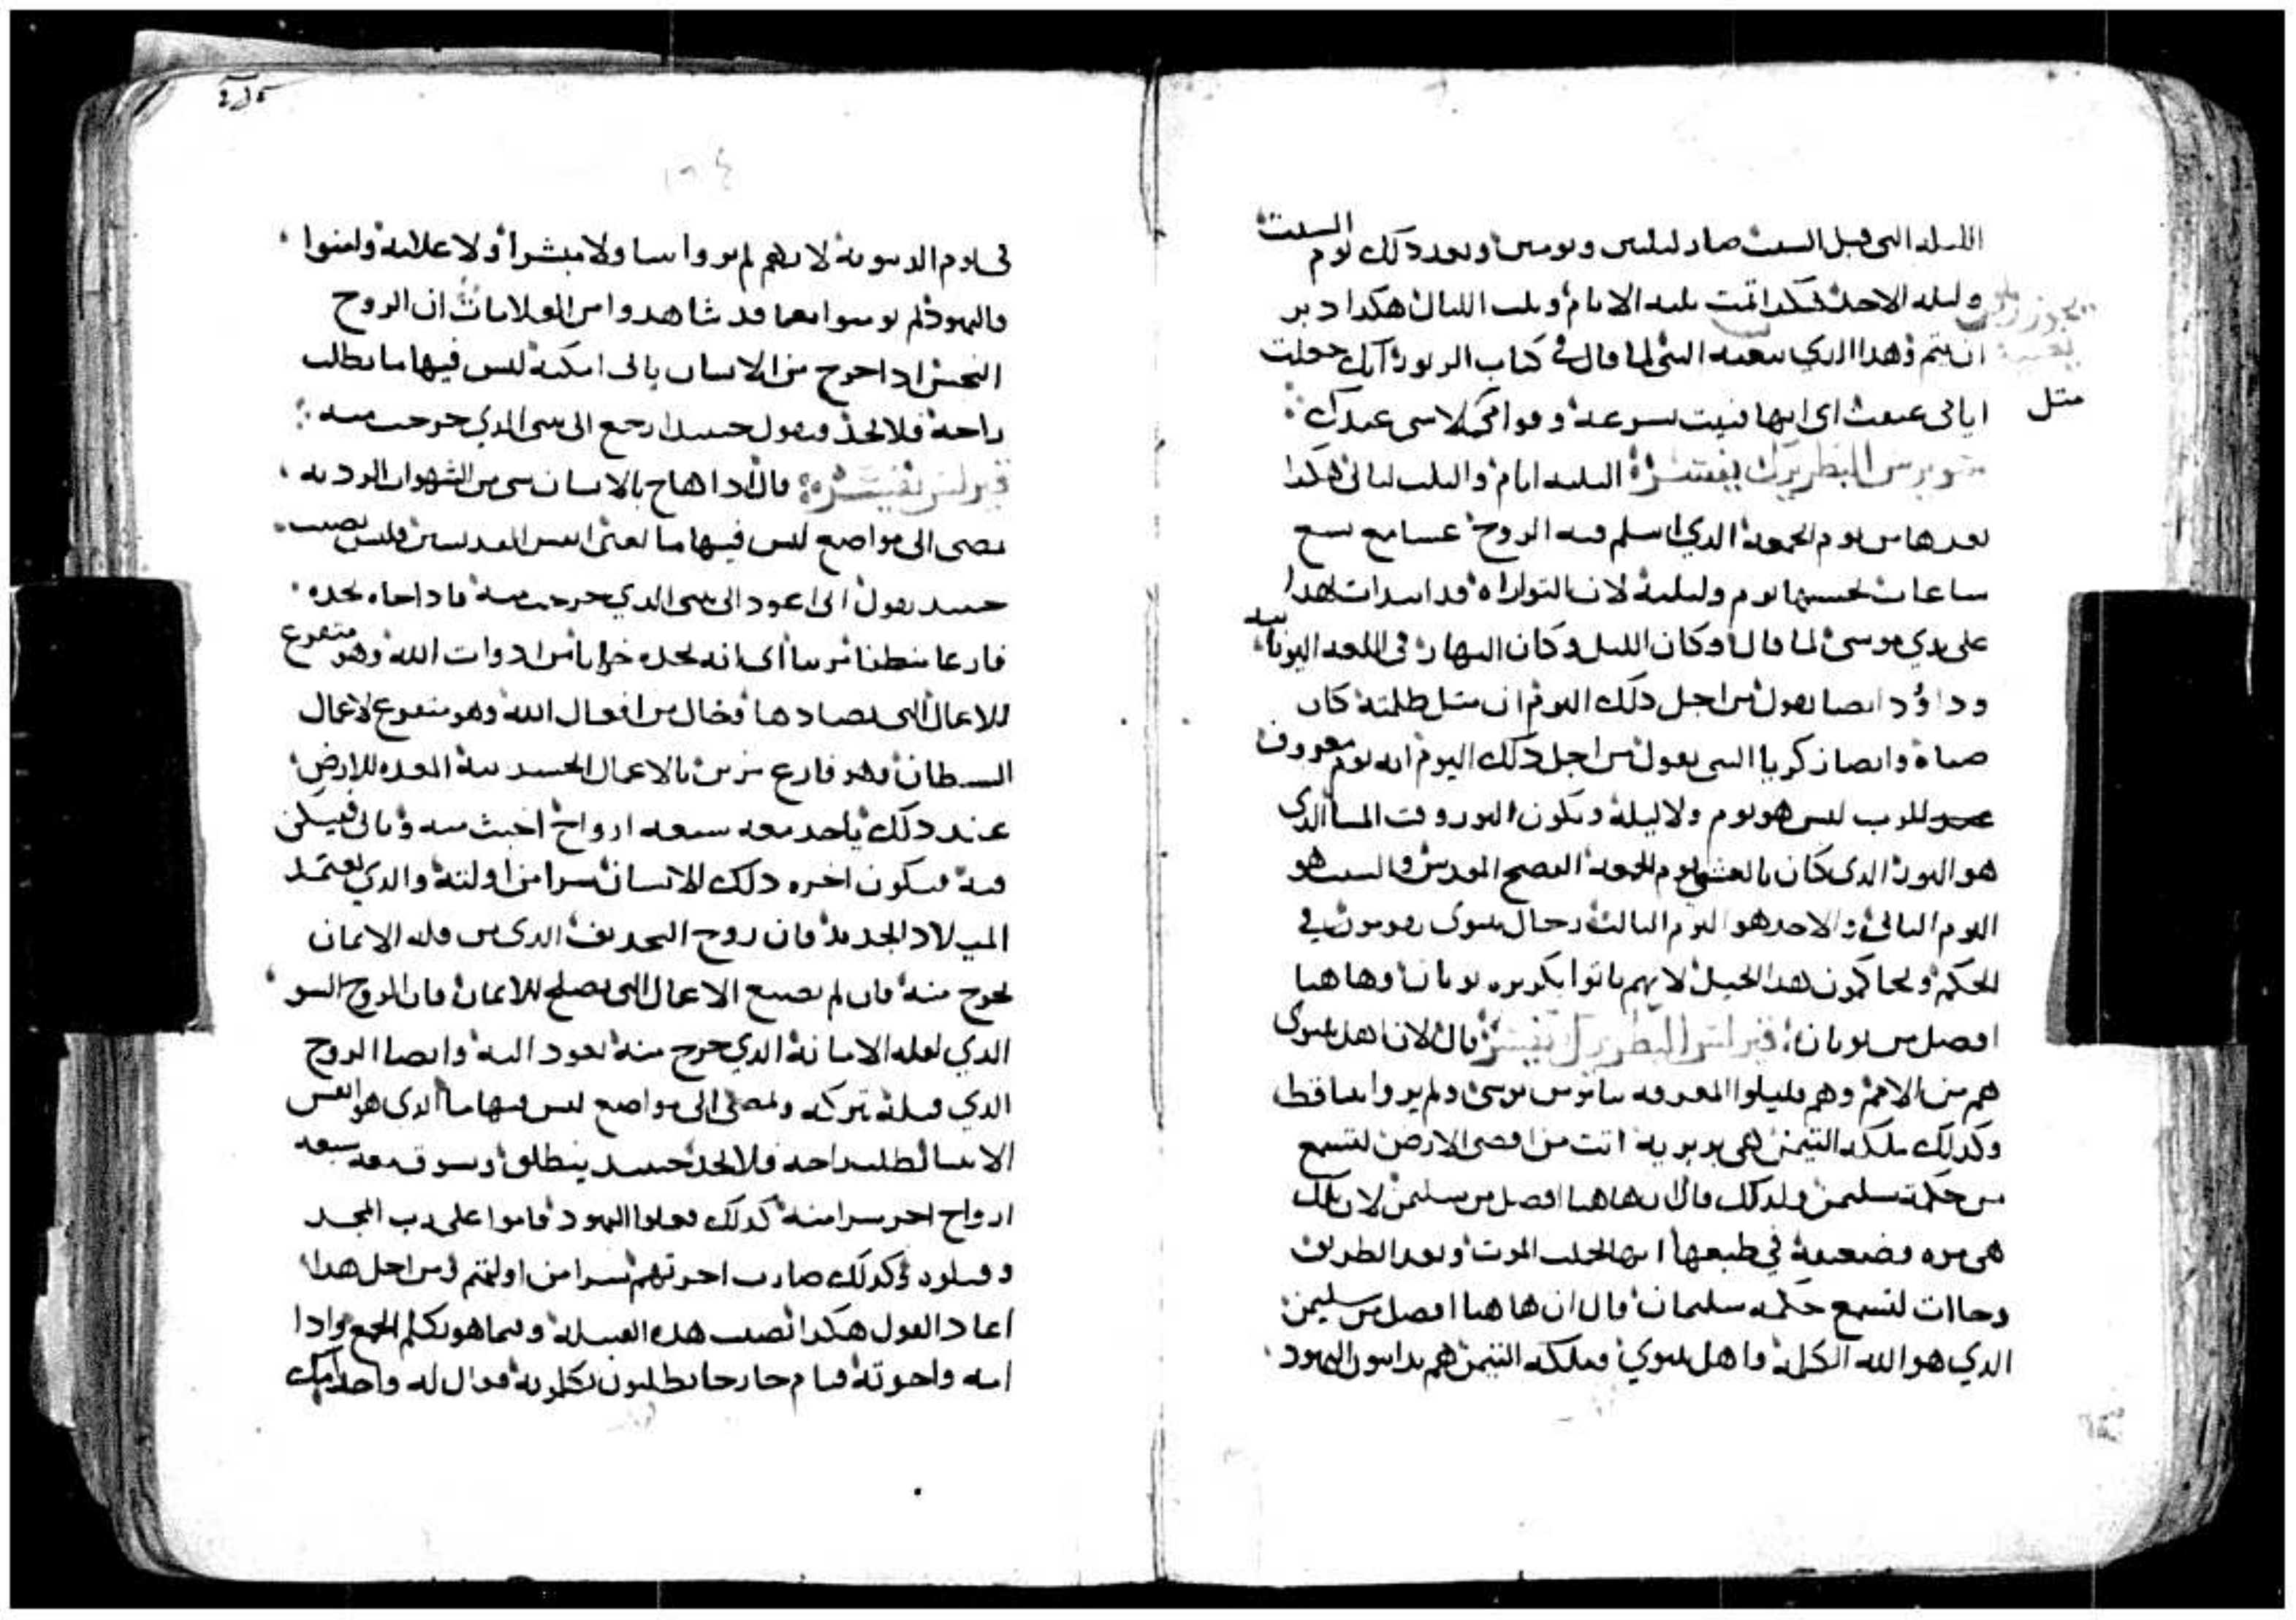 الليله التى قبل السبت صار ليلتين ويومين وبعد ذلك يوم السبت
وليله الاحد فكدا تمت تلته الايام وتلت الليال هكدا دبر
ان يتم وهدا الدي بعينه النبي لما قال في كتاب الزبور انك جعلت
مثل
ايامى عتقت اى انها فنيت بسرعه وقوامى كلاسى عندك
البطريرك يفسر التلته ايام والتلت ليالى هكدا
نعدها من يوم الجمعة الدي اسلم فيه الروح عشا مع تسع
ساعات نحسبها يوم وليلية لان التوراه قد ابتدات بهدا
على يدي موسى لما قال وكان الليل وكان النهار في اللغه اليونانيه
وداؤد ايضا يقول من اجل دلك اليوم ان مثل ظلمته كان
ضياه وايضا زكريا النبى يقول من اجل دلك اليوم انه يوم معروف
للرب ليس هو يوم ولا ليلة ويكون النور وقت المسا الدى
هو النور الدى كان بالعشى يوم الجمعة الفصح المقدس والسبت هو
اليوم التانى والاحد هو اليوم التالت رجال نينوى يقومون في
الحكم ويحاكمون هدا الجيل لانهم تابوا بكريزه يونان وهاهنا
افضل من يونان قيرلس البطريرك يفسر قال لان اهل نينوى
هم من الامم وهم قليلوا المعرفه بناموس موسى ولم يروا نبيا قط
وكدلك ملكه التيمن هى بربرية اتت من اقصى الارض لتسمع
من حكمة سليمن ولدلك قال ان هاهنا افضل من سليمن لان تلك
هى مره وضعيفة في طبعها
وجاات لتسمع حكمه سليمان قال ان هاهنا افضل من سليمن
الدي هو الله الكلمة واهل نينوي وملكه التيمن هم يداينون اليهود
في يوم الدينونة لانهم لم يروا نبيا ولا مبشرا ولا علامة وامنوا
واليهود لم يومنوا بعدما قد شاهدوا من العلامات ان الروح
النجس ادا خرج من الانسان ياتى امكنة ليس فيها ما يطلب
راحة فلا يجد فيقول حينيد ارجع الى بيتى الدي خرجت منه
قيرلس يفسره قال ادا هاج بالانسان شى من الشهوات الرديه
يمضى الى مواضع ليس فيها ما يعنى انفس القديسين فليس نصيب
حينيد يقول انى اعود الى بيتى الدي خرجت منه فادا جاه يجده
فارغا منظفا مزينا اى انه يجده خرابا من ادوات الله وهو متفرع
للاعمال التى تضادها وخال من افعال الله وهو متفرع لاعمال
الشيطان وهو فارغ مزين بالاعمال الجسدينية المعده للارض
عند دلك ياخد معه سبعه ارواح اخبث منه وياتى فيسكن
فيه فيكون اخره دلك الانسان شرا من اولته والدي يعتمد
الميلاد الجديد فان روح التجديف الدى من قلة الايمان
يخرج منه فان لم يصنع الاعمال التى تصلح للايمان فان الروح السو
الدي لقله الامانة الدي خرج منه يعود اليه وايضا الروح
الدي قبلة تتركه ويمضى الى مواضع ليس فيها ما الدى هو انفس
الانبيا لطلب راحه فلا يجد حينيد ينطلق ويسوق معه سبعه
ارواح اخر شرا منه كدلك فعلوا اليهود قاموا على رب المجد
وقتلوه وكدلك صارت اخرتهم شرا من اولتهم ومن اجل هدا
اعاد القول هكدا تصيب هده القبيلة وفيما هو يكلم الجمع وادا
امه واخوته قيام خارجا يطلبون يكلمونه فقال له واحد امك